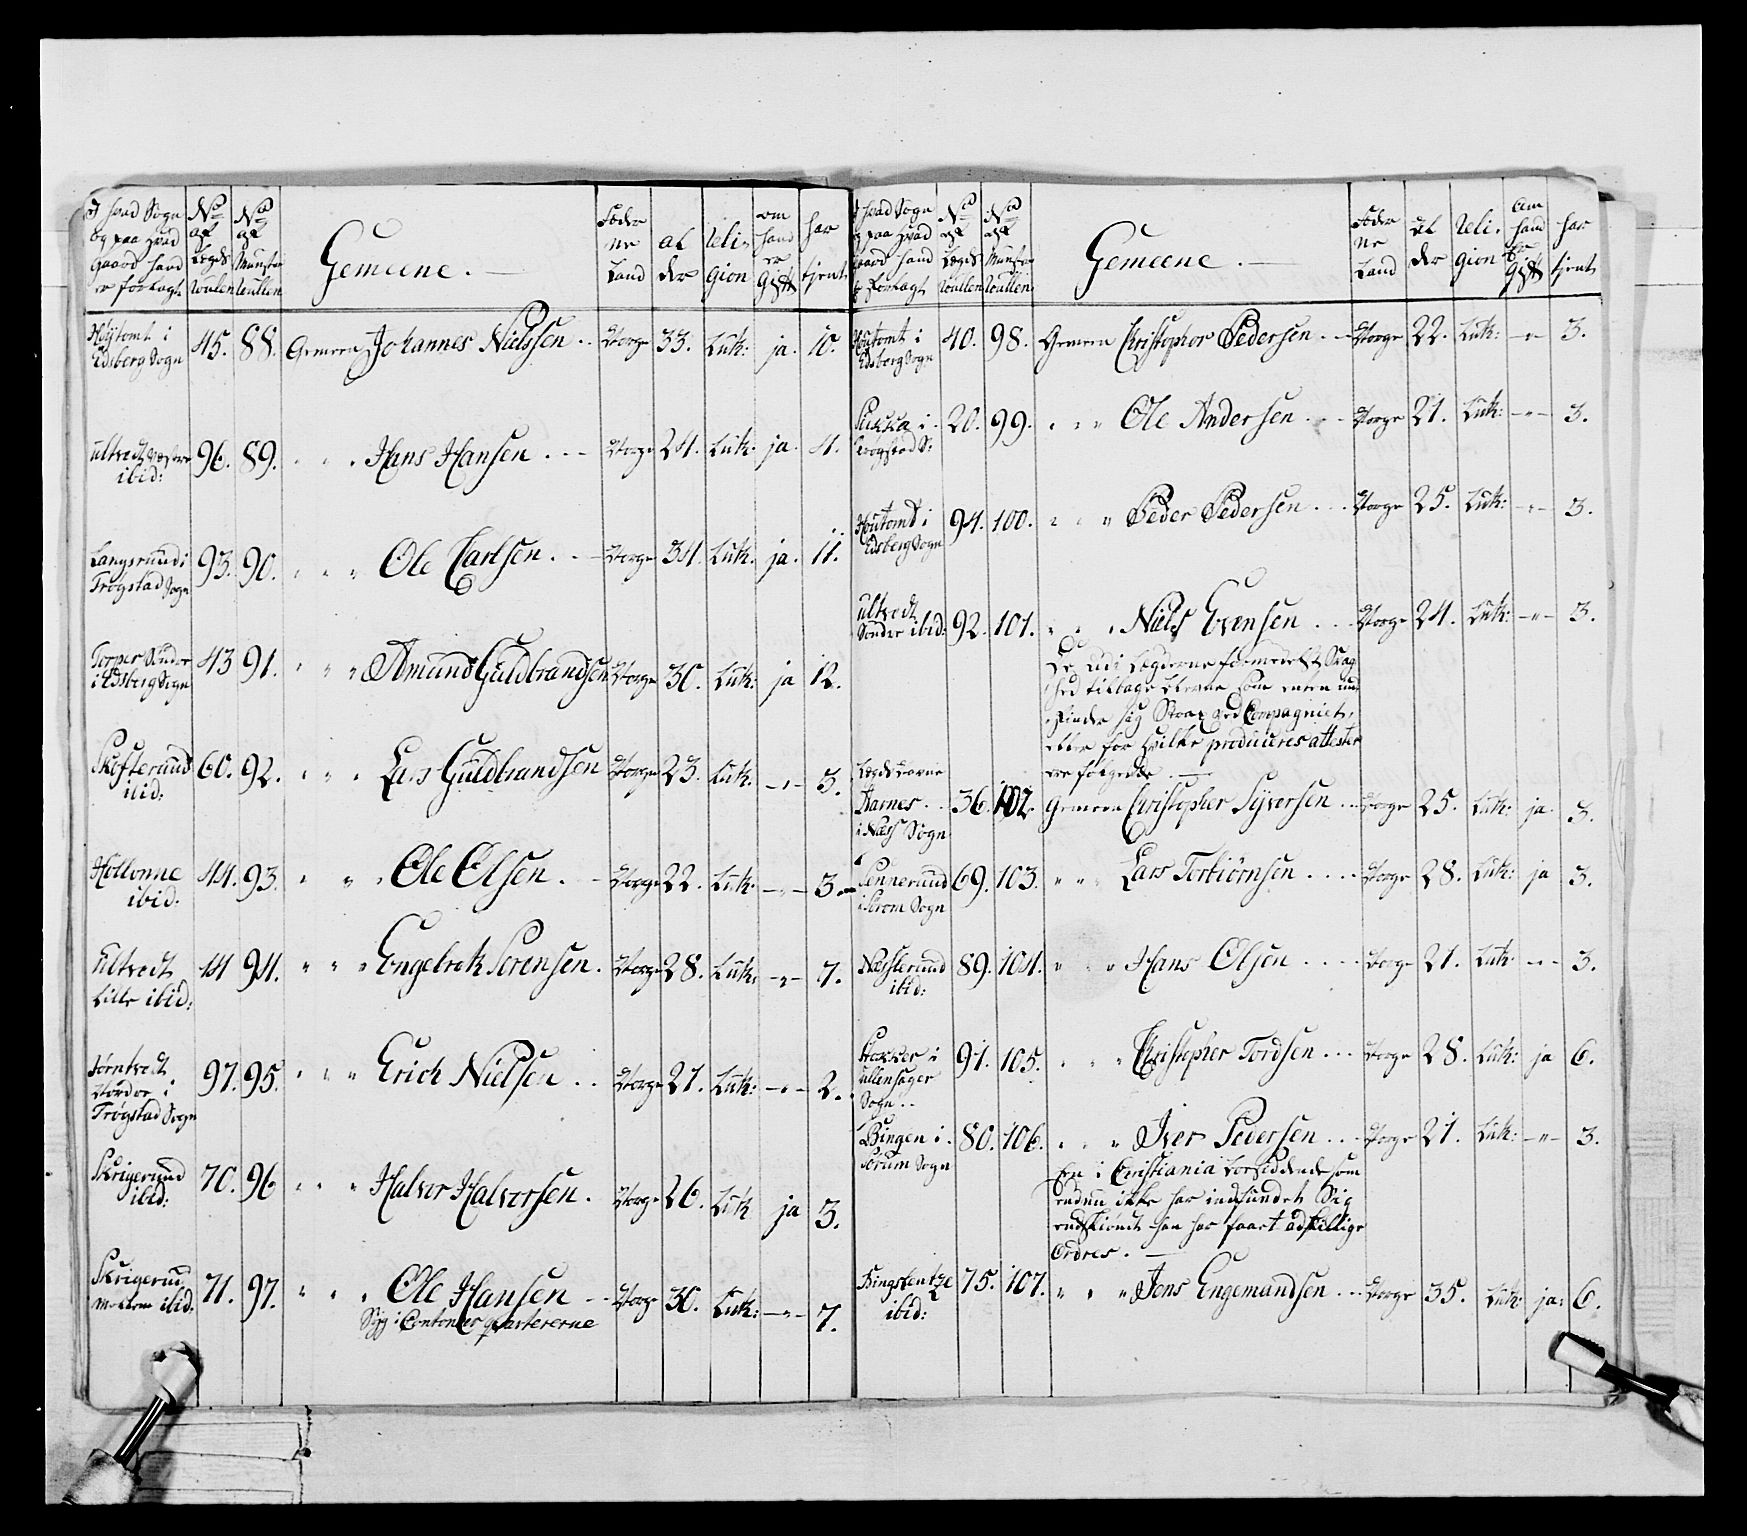 I hvad Sogn og paa hvad Gaard hand er forlagt | No af Lægds Roulen | No af Munster Roullen | Gemeene. | Föde ne Land | al der | Reli gion | om hand er Gift | har tjent
Höÿtomt i Edsberg Sogn | 45. | 88. | Gemeen Johannes Nielssen .. | Norge | 33. | Luth: | ja. | 10.
Ultvedt Westre ibid: | 96. | 89. | " " " Hans Hansen . -- | Norge | 24. | Luth: | ja. | 4.
Langsruud i Trögstad Sogn | 93. | 90. | " " " Ole Carlsen . -- | Norge | 34. | Luth. | ja. | 11.
Torper Söndre i Edsberg Sogn | 43 | 91. | " " " Amund Guldbrandsen | Norge | 30. | Luth: | ja | 12.
Skofterund ibid: | 60. | 92. | " " " Lars Guldbrandsen | Norge | 23. | Luth. | -"- | 3.
Hollonne ibid. | 44. | 93. | " " " Ole Olsen . - | Norge | 22. | Luth. | -"- | 3.
Ultvedt Lille ibid: | 44 | 94. | " " " Engebret Sörensen . | Norge | 28. | Luth: | -"- | 7.
Jörntvedt Nordre i Trögstad Sogn | 97. | 95. | " " " Erich Nielsen .. | Norge | 21. | Luth: | -"- | 2.
Skrigerund ibid: | 70. | 96 | " " " Halvor Halvorsen . | Norge | 26. | Luth | ja | 3.
Skrigerud Mellem ibid. | 71. | 97. | " " " Ole Hansen -- | Norge | 30. | Luth: | -"- | 7.
Syg i Contoneer qvartererne
I hvad Sogn og paa hvad Gaard hand er forlagt | No af Lægds Roullen | No af Munster Roullen | Gemeene. | Föde ne Land | al der | Reli gion | om hand er Gift | har tjent
Houtomt i Edsberg Sogn | 40. | 98. | Gemeen Christopher Pedersen .. | Norge | 22. | Luth: | -"- | 3.
i Trögstad S: | 20. | 99. | " " " Ole Andersen ... | Norge | 21. | Luth: | -"- | 3.
Houtomt i Edsberg Sogn | 94. | 100. | " " " Peder Pedersen ... | Norge | 25. | Luth: | -"- | 3.
Ultvedt Söndre ibid: | 92. | 101. | " " " Niels Evensen ... | Norge | 24. | Luth: | -"- | 3.
De udi Lægderne formedelst Svag
hed tilbage blevne som enten ind
finder sig Strax ved Compagniet,
eller for hvilke produceres attester
ere fölgende . —
Lægds
Aarnes .. i Næss Sogn | 36. | 102. | Gemeen Christopher Syversen .. | Norge | 25. | Luth: | ja | 3.
i Sörom Sogn | 69. | 103. | " " " Lars Torbiörnsen .... | Norge | 28. | Luth: | ja | 3.
Næsterund ibid: | 89. | 104. | " " " Hans Olsen ..... | Norge | 21. | Luth | -"- | 3.
i Ullensager Sogn .. | 91. | 105. | " " " Christopher Tordsen ... | Norge | 28. | Luth: | ja | 6.
Bingen i Sörum Sogn | 80. | 106. | " " " Iver Pedersen ... | Norge | 21. | Luth: | -"- | 3.
En i Christiania bortsiddende som
endnu ikke har indfundet Sig
endskiöndt han har faaet adskillige
Ordres . —
ibid: | 75. | 107. | " " " Jens Engemandsen .. | Norge | 35. | Luth: | ja: | 6.